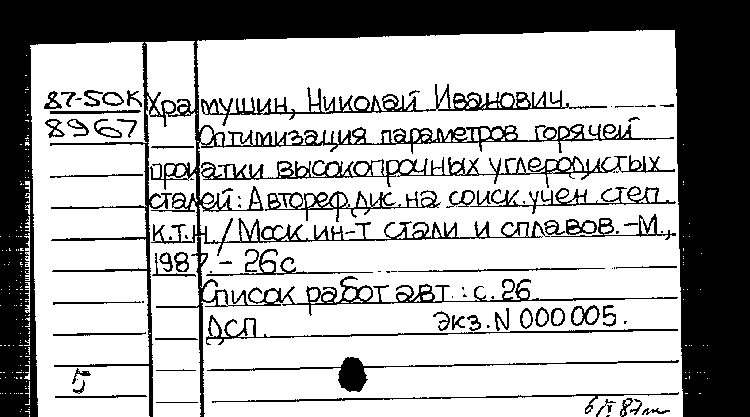 87-50К Храмушин, Николай Иванович.
8967 Оптимизация параметров горячей
прокатки высокопрочных углеродистых
сталей: Автореф. дис. на соиск. учен. степ.
к.т.н. / Моск. ин-т стали и сплавов. -М.,
1987. - 26с
Список работ авт.: с. 26
ДСП. Экз. N 000005.
5